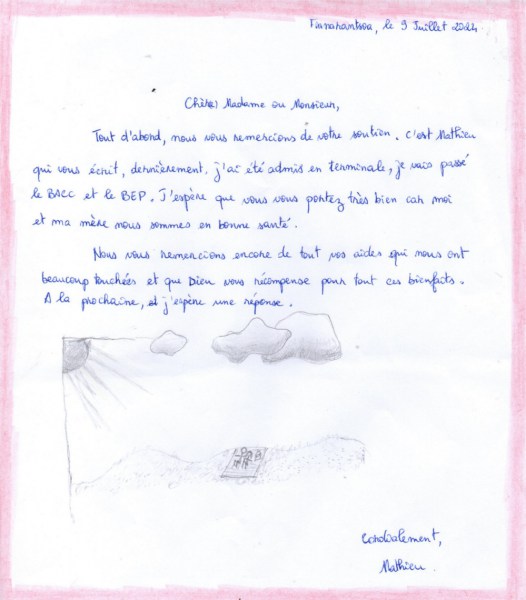 Fianarantsoa, le 9 Juillet 2024
Chè(re) Madame ou Monsieur,
Tout d'abord, nous vous remercions de votre soutien. C'est Mathieu
qui vous écrit, dernièrement, j'ai été admis en terminale, je vais passé
le BACC et le BEP. J'espère que vous vous portez très bien car moi
et ma mère nous sommes en bonne santé.
Nous vous remercions encore de tout vos aides qui nous ont
beaucoup touchées et que Dieu vous récompense pour tout ces bienfaits.
A la prochaine, et j'espère une réponse.
Cordialement,
Mathieu.